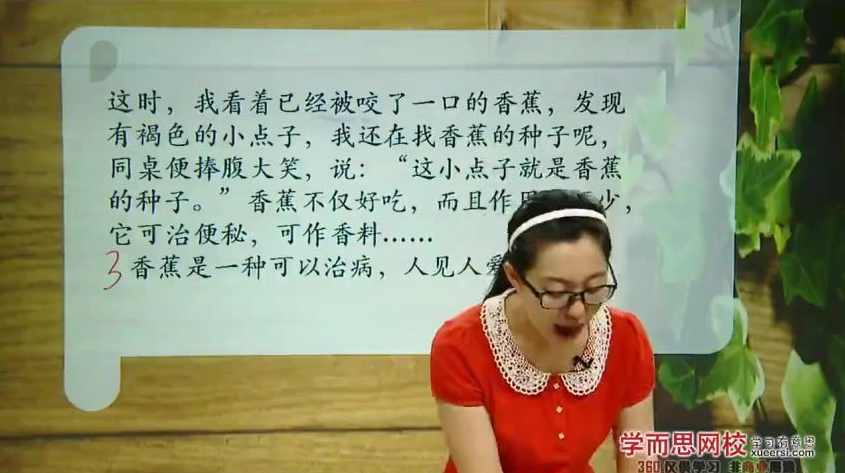 这时，我看着已经被咬了一口的香蕉，发现
有褐色的小点子，我还在找香蕉的种子呢，
同桌便捧腹大笑，说：“这小点子就是香蕉
的种子。”香蕉不仅好吃，而且作用 少，
它可治便秘，可作香料……
3 香蕉是一种可以治病，人见人爱
学而思网校
学习有意思
xueersi.com
360